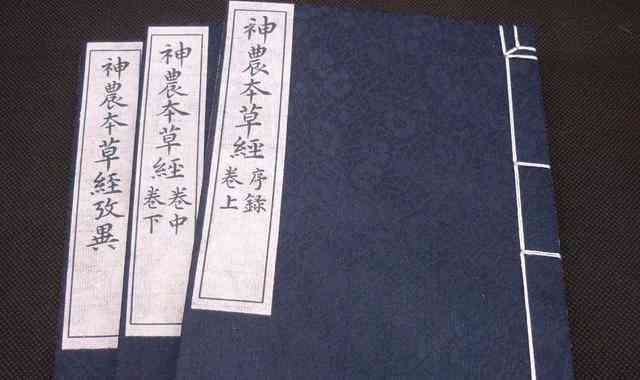 神農本草經
序錄
卷上
神農本草經
卷中
卷下
神農本草經攷異